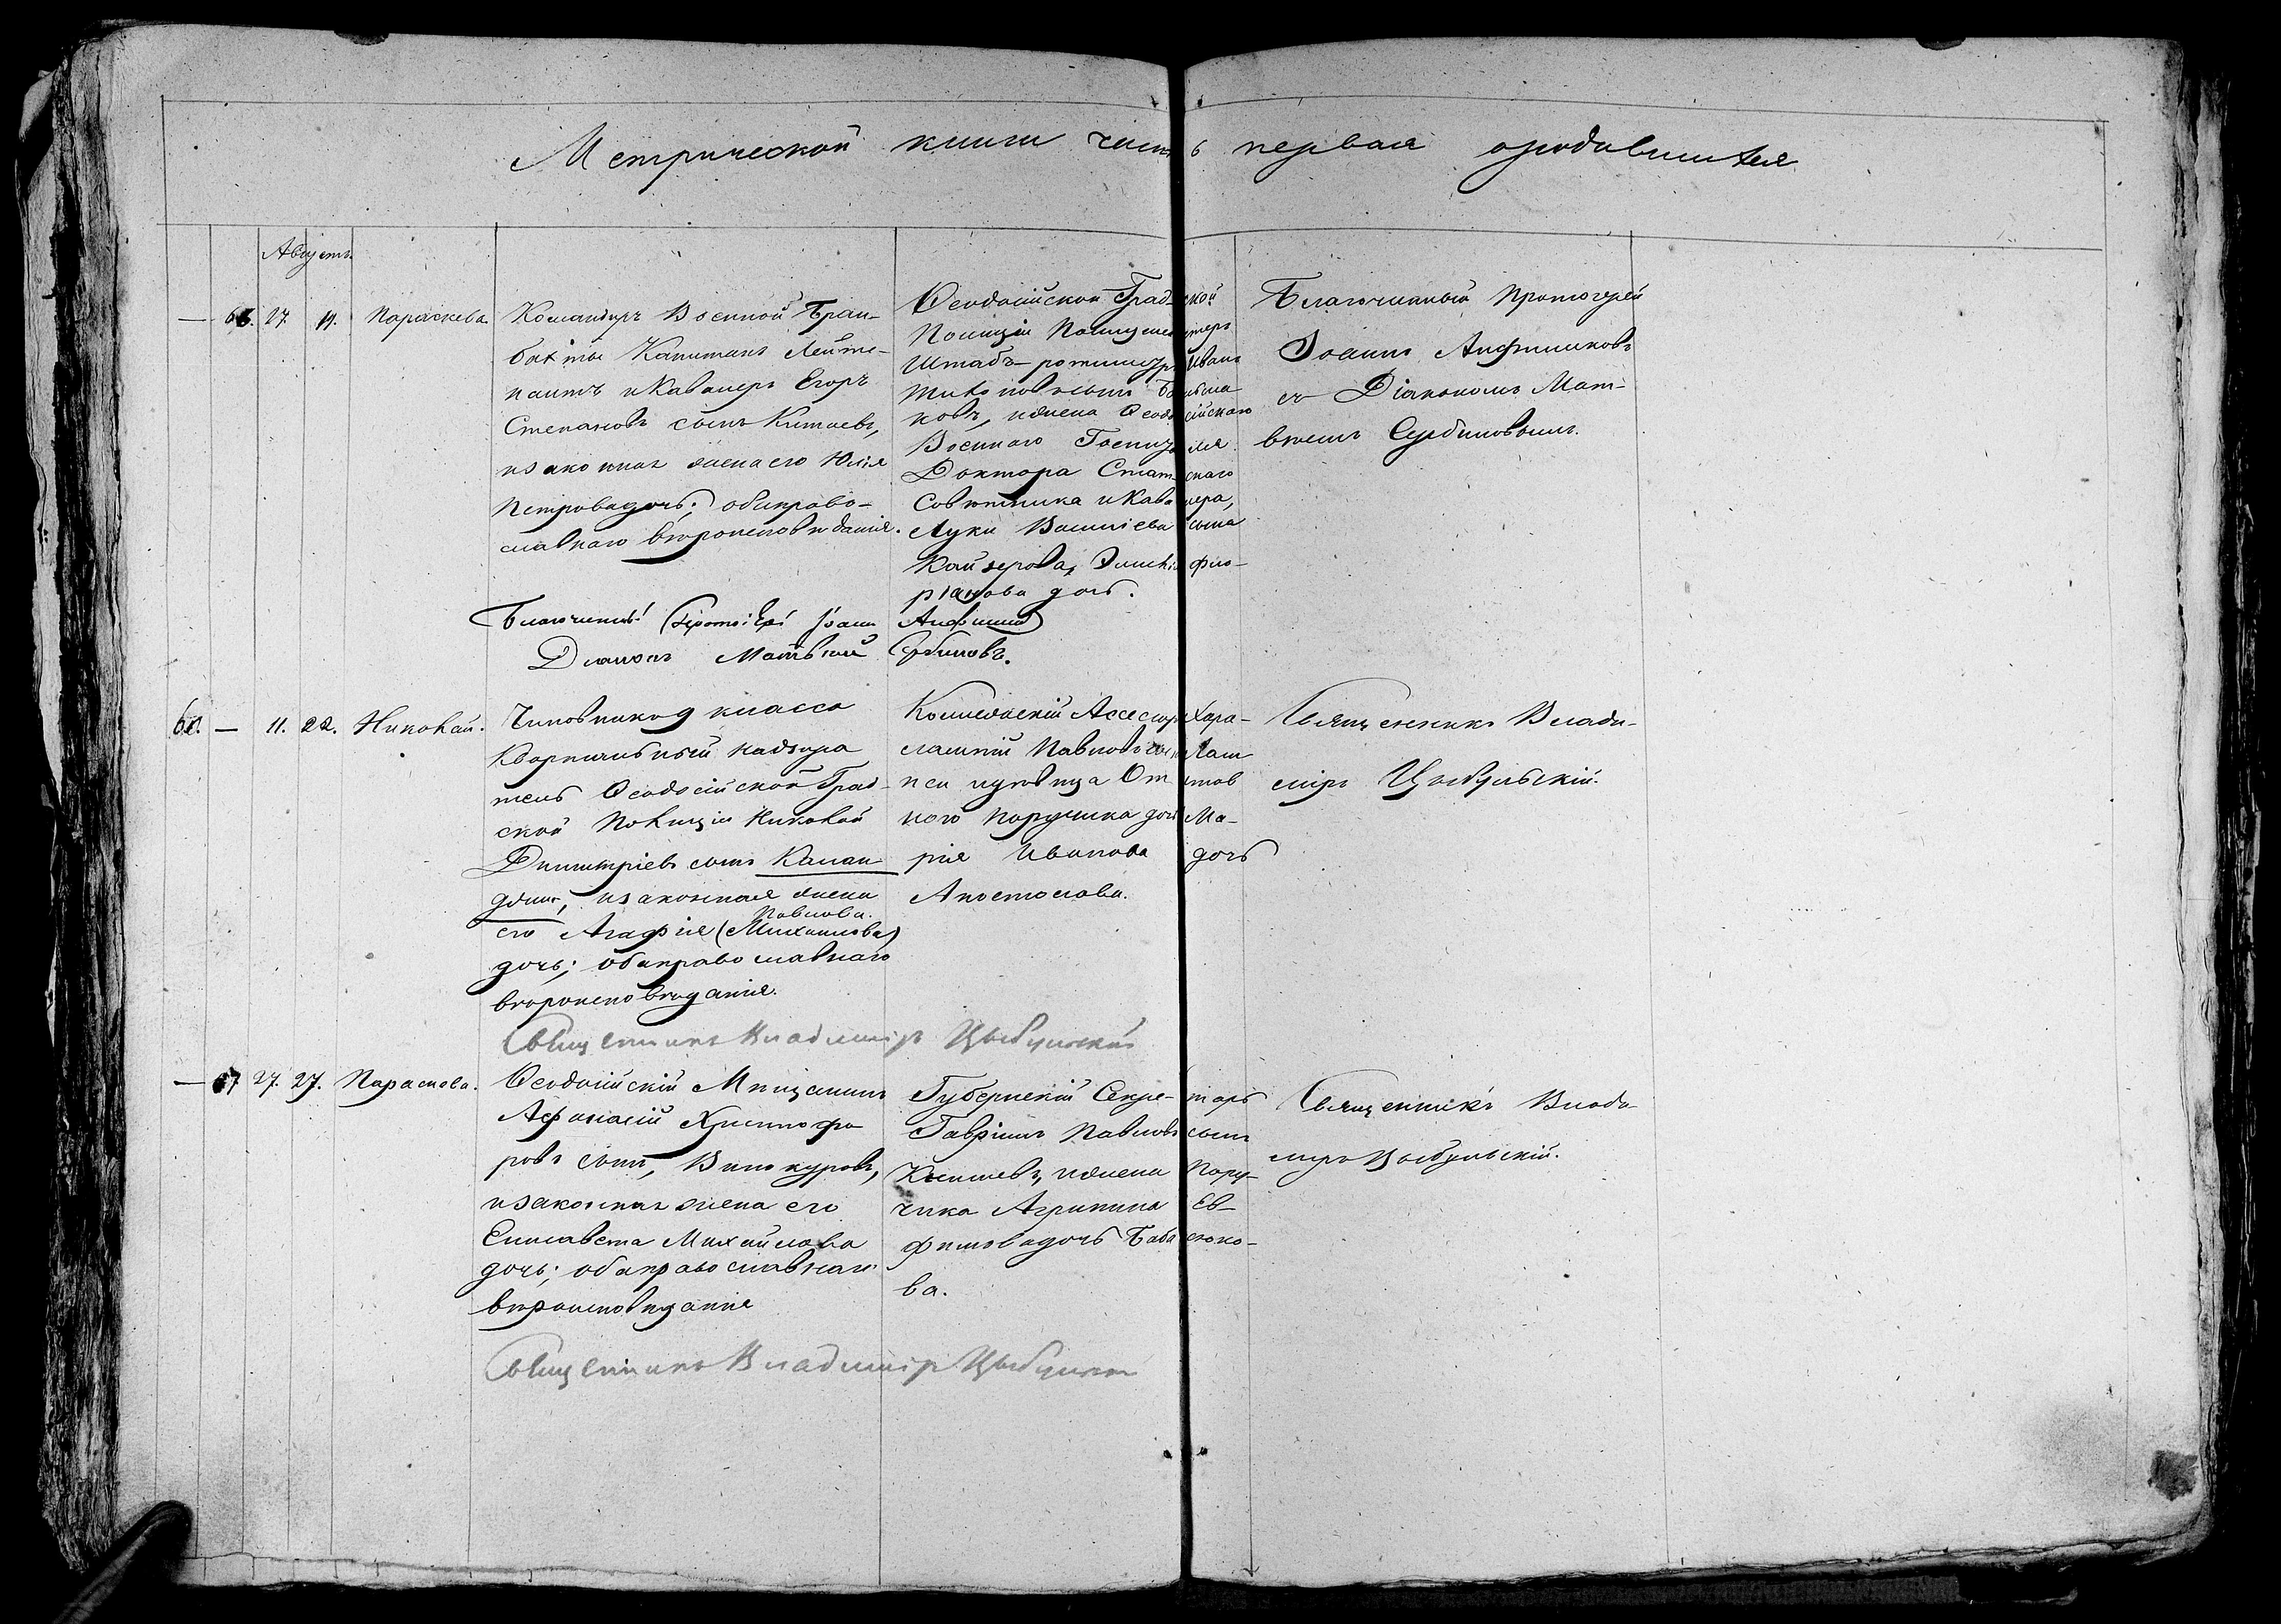 Метрической книги часть первая о родившихся
Августъ.
— 66. 27. 11. Параскева.
Командиръ Военной Бран-
вахты Капитанъ Лейте-
нантъ и Кавалеръ Егоръ
Степановъ сынъ Китаевъ,
и законная жена его Юлія
Петрова дочь; оба право-
славнаго вѣроисповѣданія.
Ѳеодосійской Градской
Полиціи Полицмейстеръ
Штабъ-ротмистръ Иванъ
сынъ
ковъ, и жена Ѳеодосійскаго
Военнаго Госпиталя
Доктора Статскаго
Совѣтника и Кавалера,
Луки Васильева сына
Кайзерова, фло-
ріанова дочь.
Благочинный Протоіерей
Іоаннъ Анфимиковъ
съ Діакономъ Мат-
вѣемъ Сербиновымъ.
Благочинный Протоіерей Іоаннъ
Діаконъ Матвѣй Сербиновъ.
— 11. 22. Николай.
Чиновникъ 9 класса
Квартальный надзира
тель Ѳеодосійской Град-
ской Полиціи Николай
Димитріевъ сынъ Калан-
и законная жена
Павлова.
его Агафія (Михаилова)
дочь; оба православнаго
вѣроисповѣданія.
Коллежскій Ассесоръ Хара-
лампій Павловъ сынъ
нси и дѣвица Отстав
ного Поручика дочь Ма-
рія Иванова дочь
Апостолова.
Священникъ Влади-
миръ Цыбульскій.
Священникъ Владиміръ Цыбульскій
— 67 27. 27. Параскева.
Ѳеодосійскій Мѣщанинъ
Афанасій Христофо
ровъ сынъ, Винокуровъ,
и законная жена его
Елисавета Михайлова
дочь; оба православнаго
вѣроисповѣданія
Губернскій Секретарь
Гавріилъ Павловъ сынъ
и жена Пору-
чика Агрипина Ев-
фимова дочь
ва.
Священникъ Влади-
миръ Цыбульскій.
Священникъ Владиміръ Цыбульскій